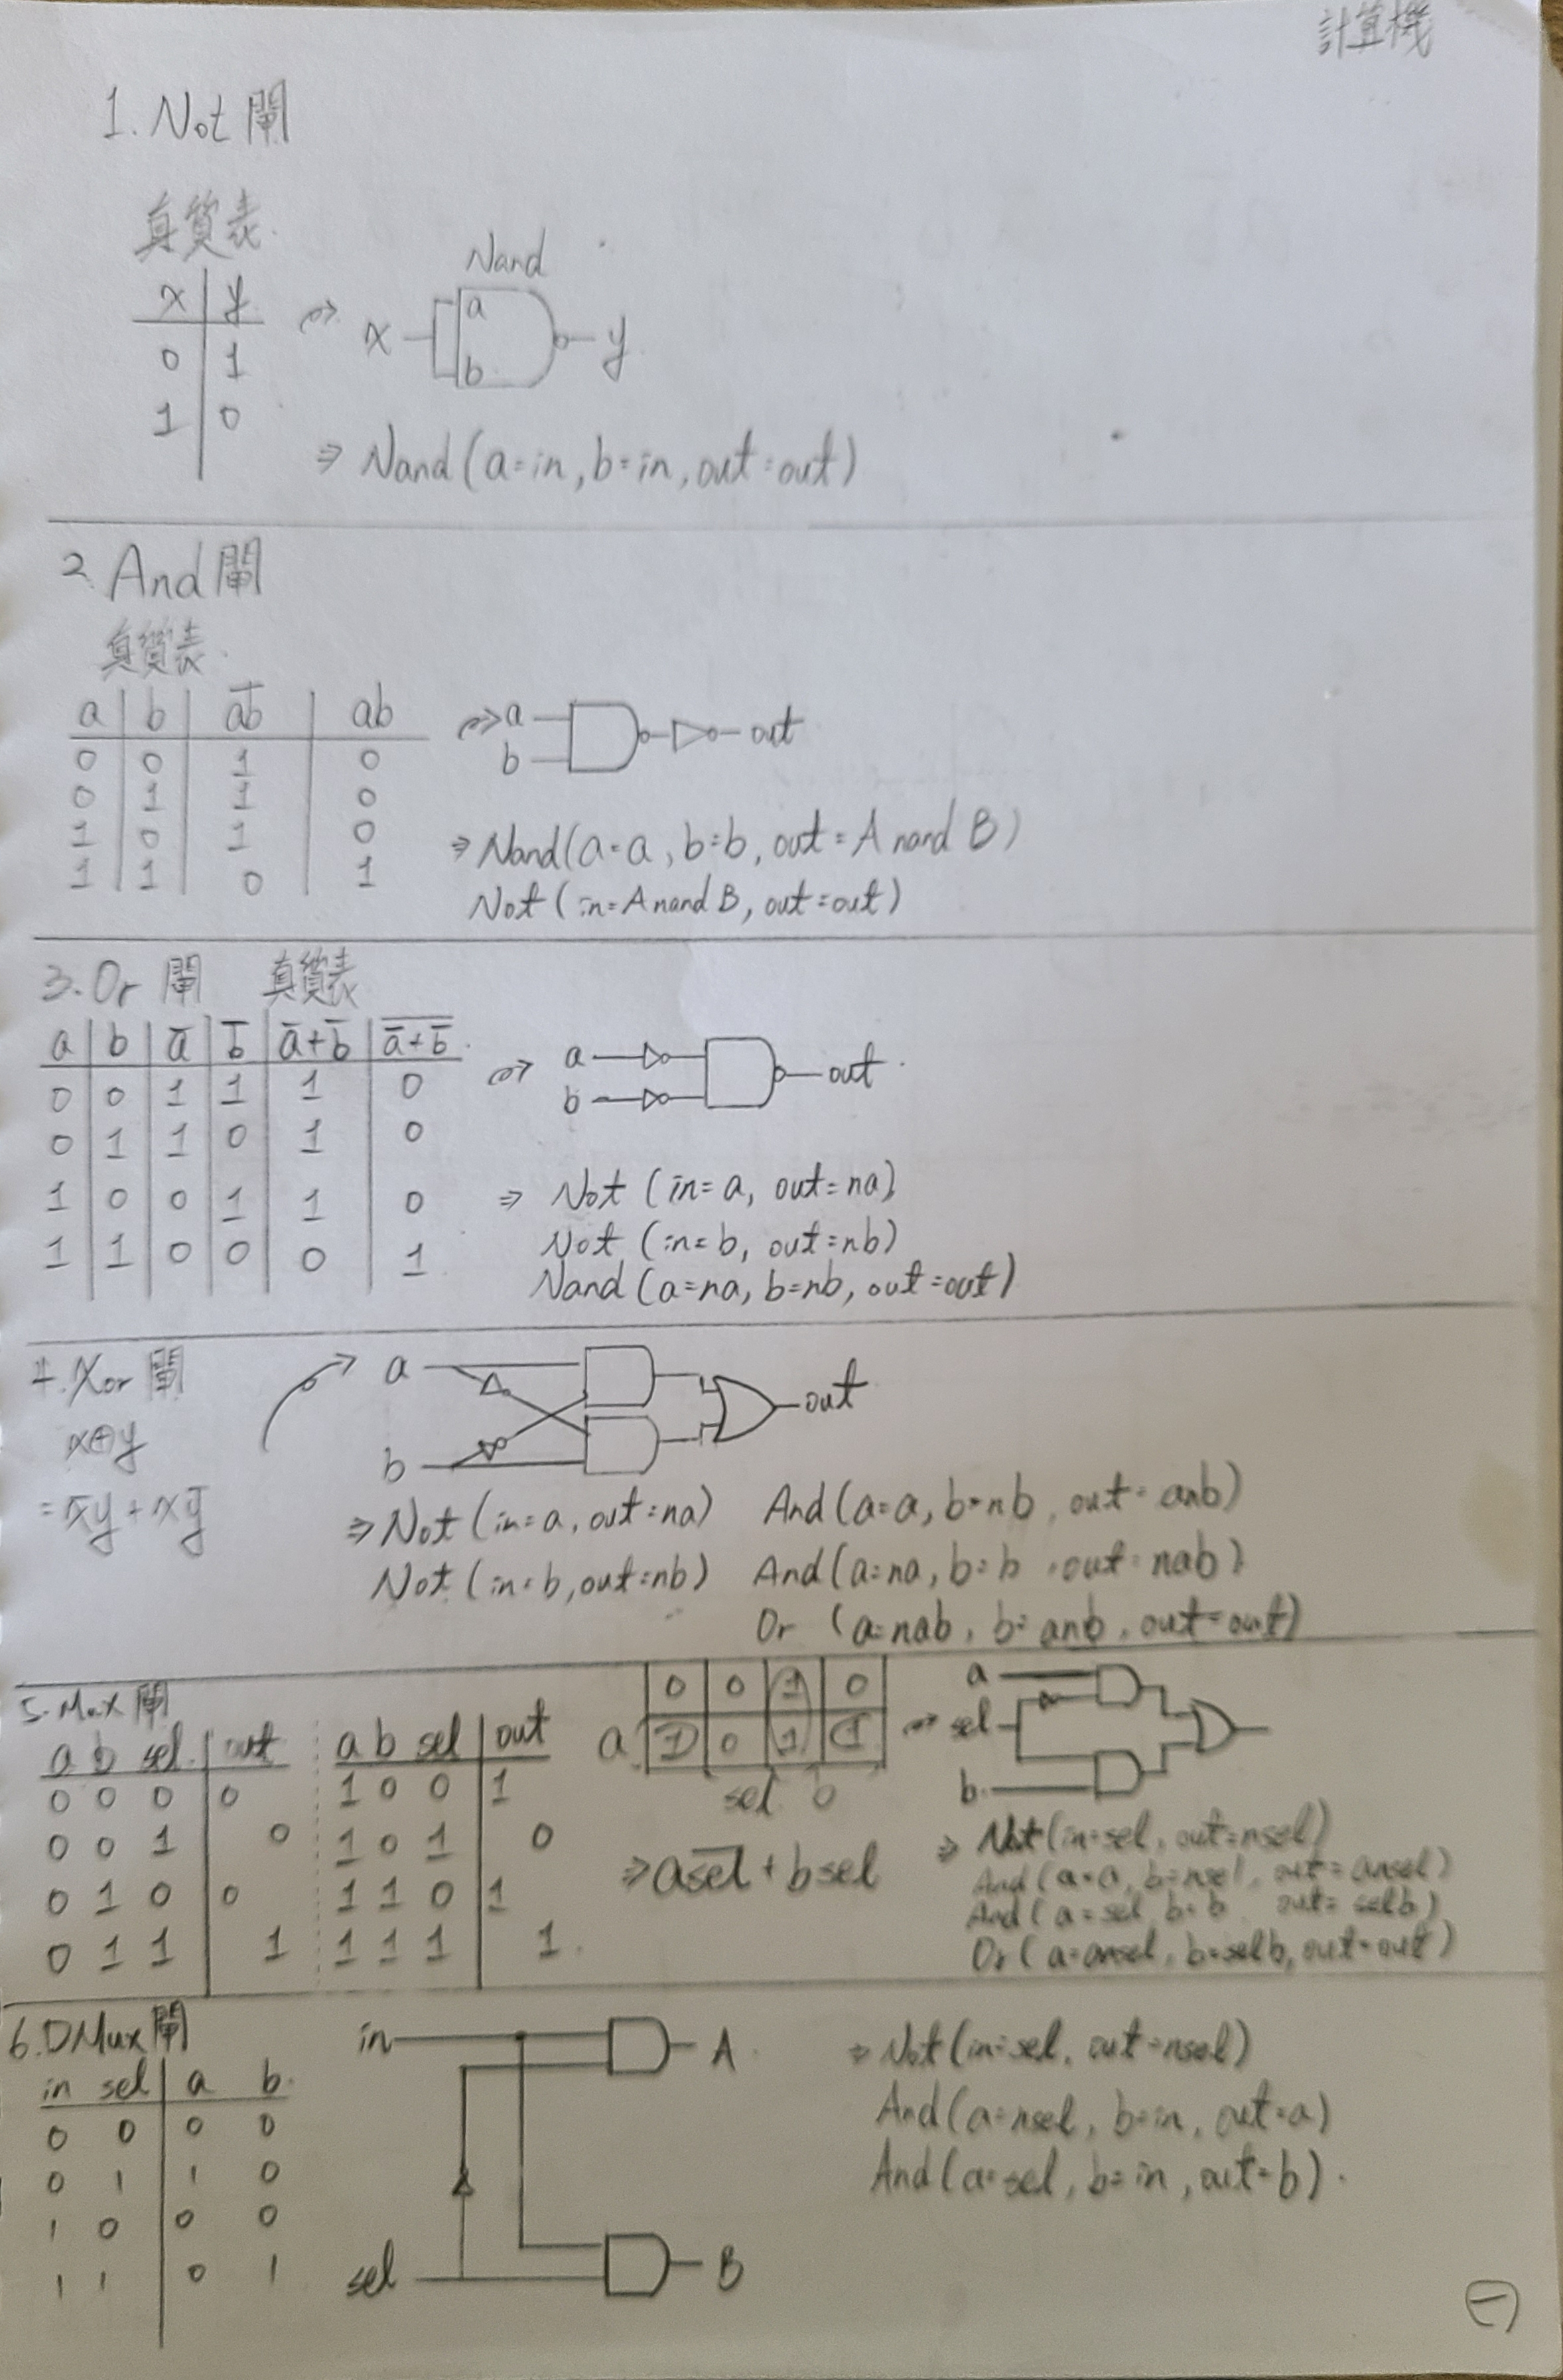 計算機
1. Not 閘
真質表
x y
0 1
1 0
Nand
x a b y
⇒ Nand (a=in, b=in, out=out)
2. And 閘
真質表
a b a̅b̅ ab
0 0 1 0
0 1 1 0
1 0 1 0
1 1 0 1
a
b
out
⇒ Nand(a=a, b=b, out=A nand B)
Not (in=A nand B, out=out)
3. Or 閘 真質表
a b a̅ b̅ a̅+b̅ \overline{a̅+b̅}
0 0 1 1 1 0
0 1 1 0 1 0
1 0 0 1 1 0
1 1 0 0 0 1
a
b
out
⇒ Not (in=a, out=na)
Not (in=b, out=nb)
Nand (a=na, b=nb, out=out)
4. Xor 閘
x⊕y
= x̅y + xy̅
a
b
out
⇒ Not (in=a, out=na) And(a=a, b=nb, out=anb)
Not (in=b, out=nb) And(a=na, b=b, out=nab)
Or (a=nab, b=anb, out=out)
5. Mux 閘
a b sel out
0 0 0 0
0 0 1 0
0 1 0 0
0 1 1 1
a b sel out
1 0 0 1
1 0 1 0
1 1 0 1
1 1 1 1
0 0 1 0
a 1 0 1 1
sel b
⇒ a\overline{sel} + b sel
a
sel
b
⇒ Not(in=sel, out=nsel)
And(a=a, b=nsel, out=ansel)
And(a=sel b=b out=selb)
Or(a=ansel, b=selb, out=out)
6. DMux 閘
in sel a b
0 0 0 0
0 1 1 0
1 0 0 0
1 1 0 1
in A
sel B
⇒ Not(in=sel, out=nsel)
And(a=nsel, b=in, out=a)
And(a=sel, b=in, out=b).
㊀